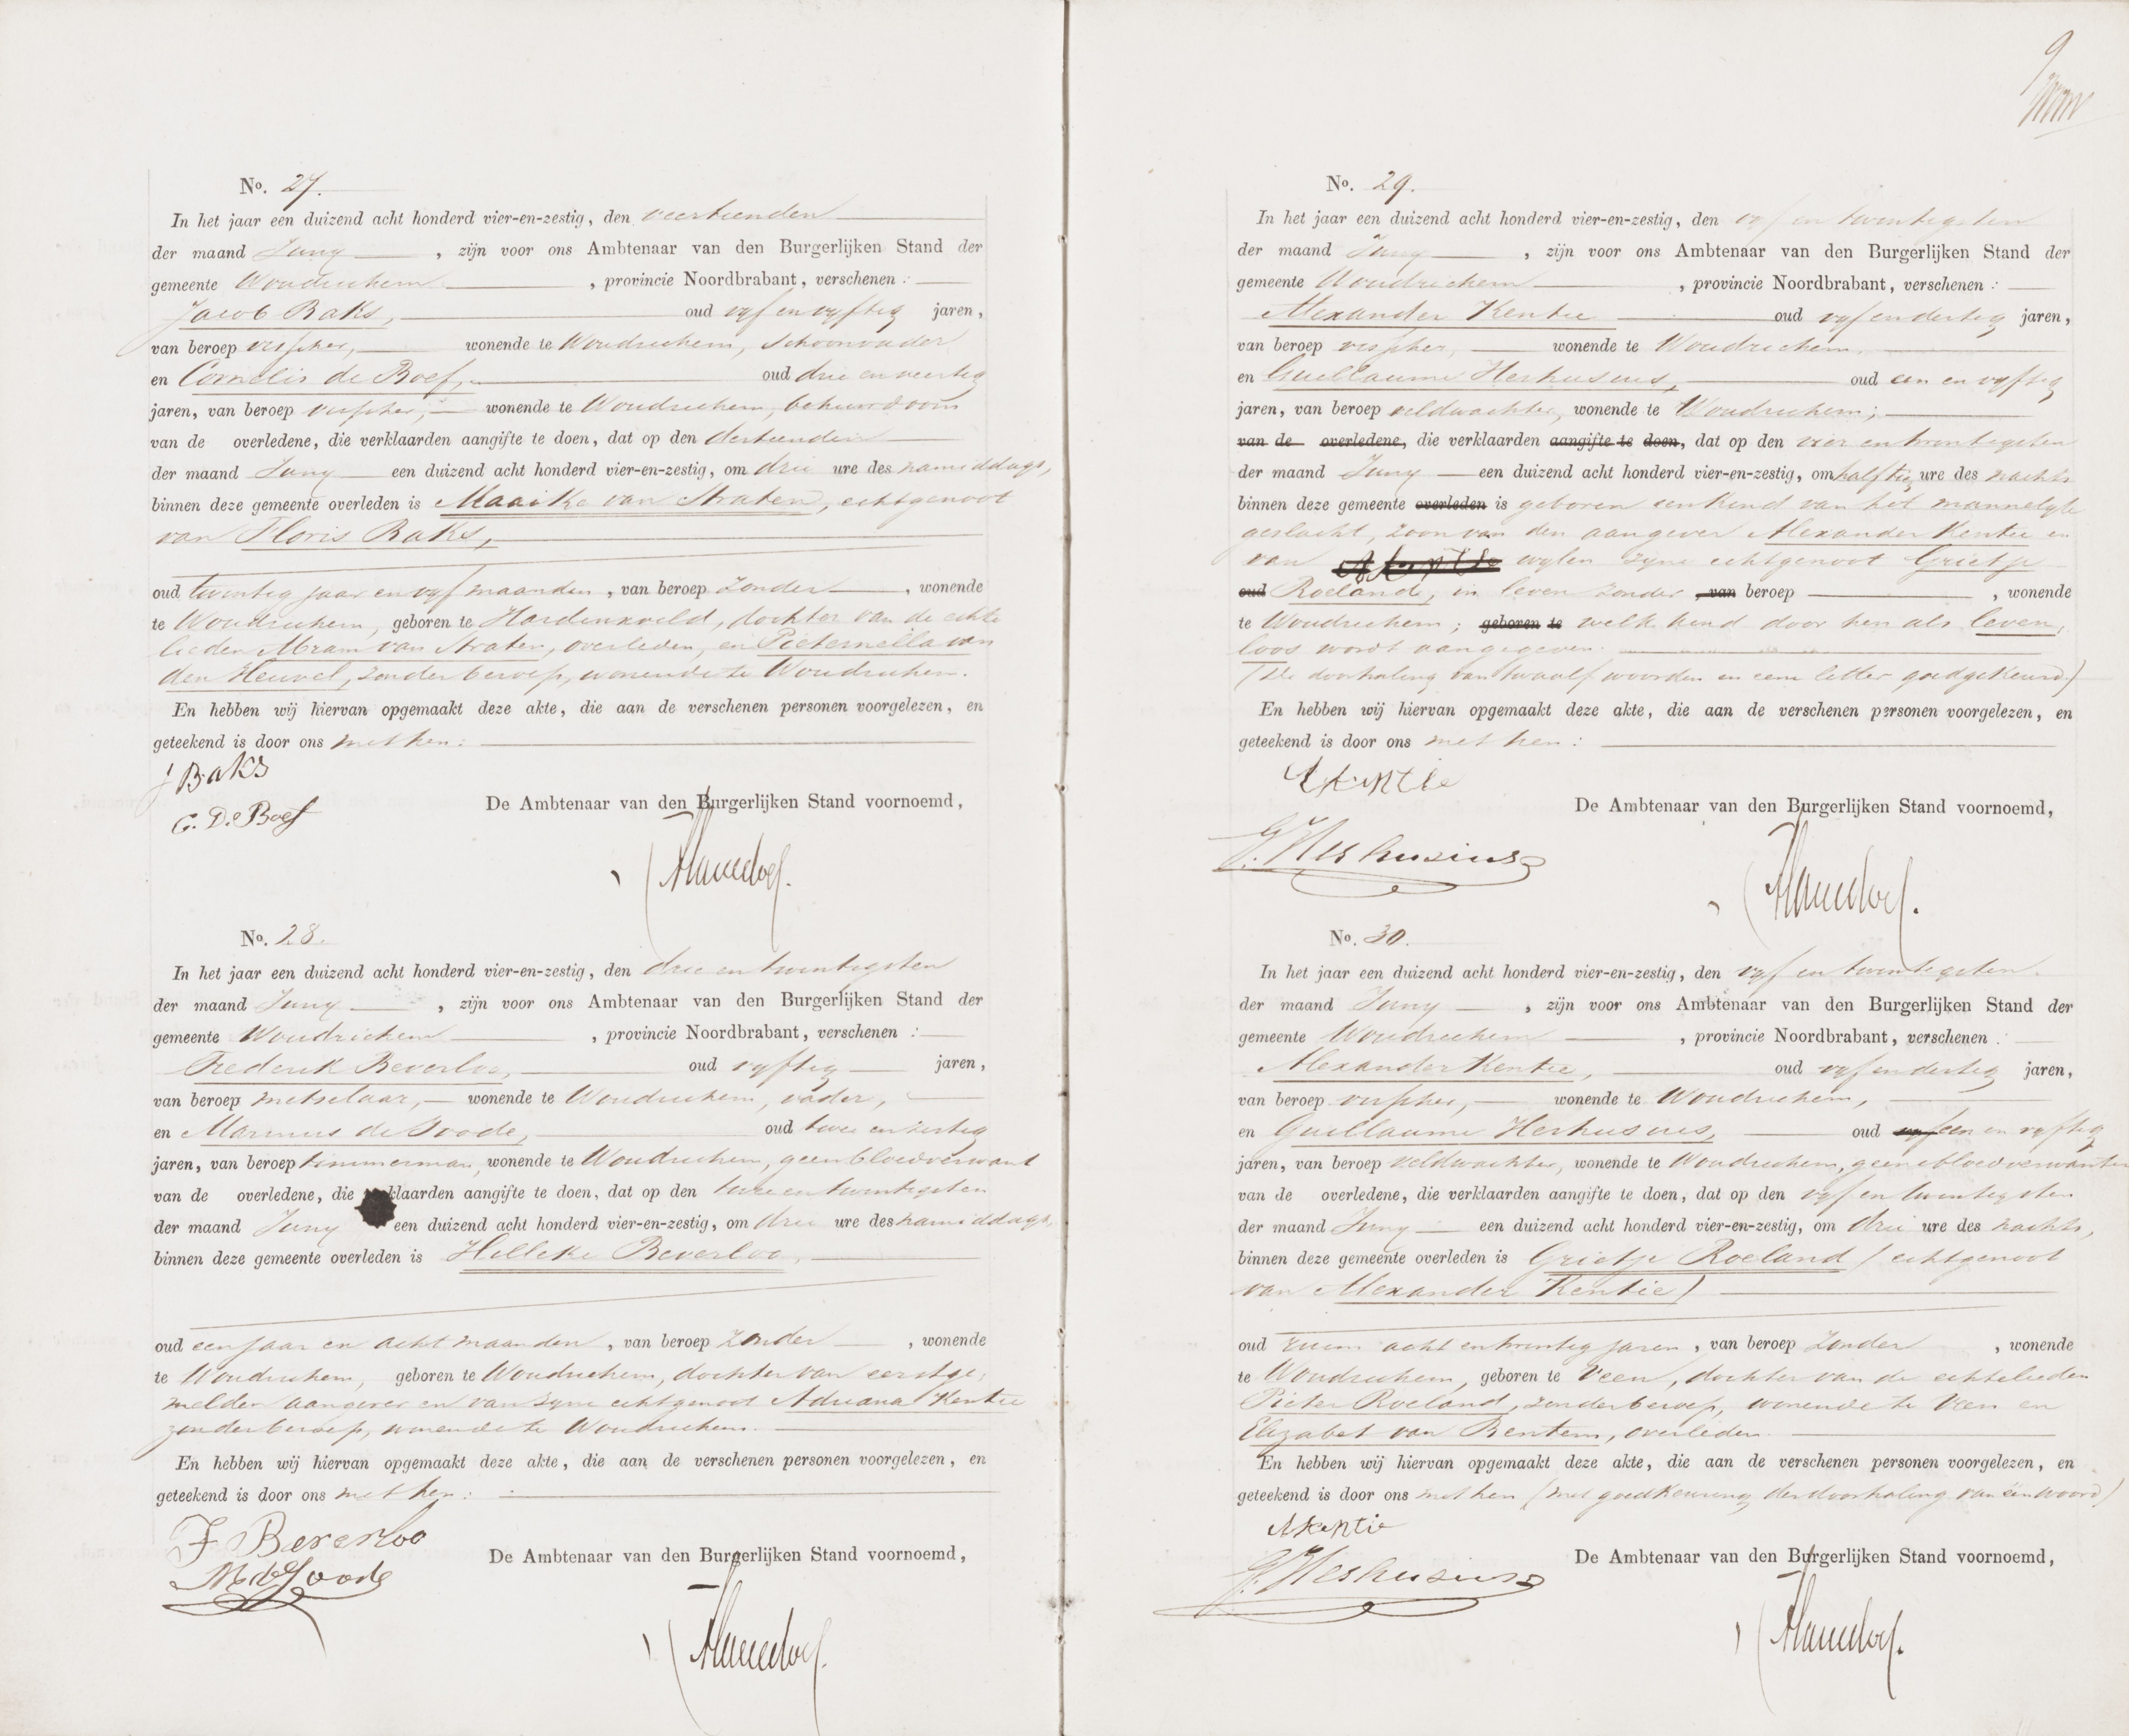 No. 27.
In het jaar een duizend acht honderd vier-en-zestig, den veertienden
der maand Juny, zijn voor ons Ambtenaar van den Burgerlijken Stand der
gemeente Woudrichem, provincie Noordbrabant, verschenen:
Jacob Baks, oud vyf en vyftig jaren,
van beroep visscher, wonende te Woudrichem, schoonvader
en Cornelis de Boef, oud drie en veertig
jaren, van beroep visscher, wonende te Woudrichem, behuwdoom
van de overledene, die verklaarden aangifte te doen, dat op den dertienden
der maand Juny een duizend acht honderd vier-en-zestig, om drie ure des namiddags,
binnen deze gemeente overleden is Maaike van Straten, echtgenoot
van Floris Baks,
oud twintig jaar en vyf maanden, van beroep zonder, wonende
te Woudrichem, geboren te Hardinxveld, dochter van de echte
lieden Abram van Straten, overleden, en Pieternella van
den Heuvel, zonder beroep, wonende te Woudrichem.
En hebben wij hiervan opgemaakt deze akte, die aan de verschenen personen voorgelezen, en
geteekend is door ons met hen:
J Baks
C. De Boef
De Ambtenaar van den Burgerlijken Stand voornoemd,
No. 28.
In het jaar een duizend acht honderd vier-en-zestig, den drie en twintigsten
der maand Juny, zijn voor ons Ambtenaar van den Burgerlijken Stand der
gemeente Woudrichem, provincie Noordbrabant, verschenen:
Frederik Beverloo, oud vyftig jaren,
van beroep metselaar, wonende te Woudrichem, vader,
en Marinus de Joode, oud twee en zestig
jaren, van beroep timmerman, wonende te Woudrichem, geen bloedverwant
van de overledene, die verklaarden aangifte te doen, dat op den twee en twintigsten
der maand Juny een duizend acht honderd vier-en-zestig, om drie ure des namiddags,
binnen deze gemeente overleden is Hilleke Beverloo,
oud een jaar en acht maanden, van beroep zonder, wonende
te Woudrichem, geboren te Woudrichem, dochter van eerstge,
melden aangever en van zyne echtgenoot Adriana Kentie
zonder beroep, wonende te Woudrichem.
En hebben wij hiervan opgemaakt deze akte, die aan de verschenen personen voorgelezen, en
geteekend is door ons met hen:
F Beverloo
M de Joode
De Ambtenaar van den Burgerlijken Stand voornoemd,
9
No. 29.
In het jaar een duizend acht honderd vier-en-zestig, den vyf en twintigsten
der maand Juny, zijn voor ons Ambtenaar van den Burgerlijken Stand der
gemeente Woudrichem, provincie Noordbrabant, verschenen:
Alexander Kentie oud vyf en dertig jaren,
van beroep visscher, wonende te Woudrichem,
en Guillaume Heshusius, oud een en vyftig
jaren, van beroep veldwachter, wonende te Woudrichem;
van de overledene, die verklaarden aangifte te doen, dat op den vier en twintigsten
der maand Juny een duizend acht honderd vier-en-zestig, om half tien ure des nachts
binnen deze gemeente overleden is geboren een kind van het mannelyk
geslacht, zoon van den aangever Alexander Kentie en
van wylen zyne echtgenoot Grietje
oud Roeland, in leven zonder, van beroep, wonende
te Woudrichem; geboren te welk kind door hen als leven,
loos wordt aangegeven.
(De doorhaling van twaalf woorden en eene letter goedgekeurd.)
En hebben wij hiervan opgemaakt deze akte, die aan de verschenen personen voorgelezen, en
geteekend is door ons met hen:
A Kentie
G. Heshusius
De Ambtenaar van den Burgerlijken Stand voornoemd,
No. 30.
In het jaar een duizend acht honderd vier-en-zestig, den vyf en twintigsten
der maand Juny, zijn voor ons Ambtenaar van den Burgerlijken Stand der
gemeente Woudrichem, provincie Noordbrabant, verschenen:
Alexander Kentie, oud vyf en dertig jaren,
van beroep visscher, wonende te Woudrichem,
en Guillaume Heshusius, oud vyf een en vyftig
jaren, van beroep veldwachter, wonende te Woudrichem, geene bloedverwanten
van de overledene, die verklaarden aangifte te doen, dat op den vyf en twintigsten
der maand Juny een duizend acht honderd vier-en-zestig, om drie ure des nachts,
binnen deze gemeente overleden is Grietje Roeland (echtgenoot
van Alexander Kentie)
oud ruim acht en twintig jaren, van beroep zonder, wonende
te Woudrichem, geboren te Veen, dochter van de echtelieden
Pieter Roeland, zonder beroep, wonende te Veen en
Elizabet van Bentem, overleden.
En hebben wij hiervan opgemaakt deze akte, die aan de verschenen personen voorgelezen, en
geteekend is door ons met hen (met goedkeuring der doorhaling van één woord)
A Kentie
G. Heshusius
De Ambtenaar van den Burgerlijken Stand voornoemd,